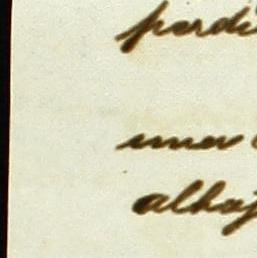 perdi
una
alhaj